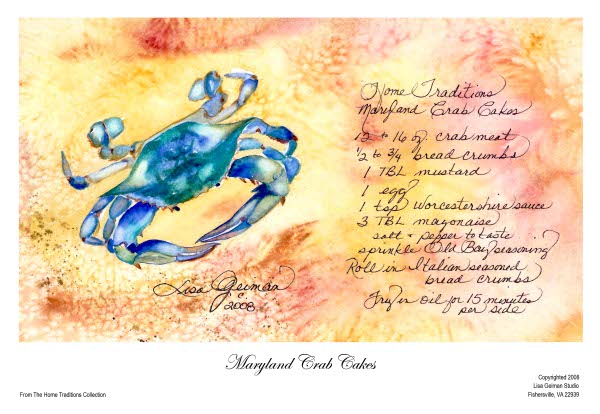 Home Traditions
Maryland Crab Cakes
12 to 16 oz. crab meat
1/2 to 3/4 bread crumbs
1 TBL mustard
1 egg
1 tsp Worcestershire sauce
3 TBL mayonaise
salt + pepper to taste
sprinkle Old Bay seasoning
Roll in Italian seasoned
bread crumbs
Fry in oil for 15 minutes
per side
Lisa Geiman
© 2008
Maryland Crab Cakes
From The Home Traditions Collection
Copyrighted 2008
Lisa Geiman Studio
Fishersville, VA 22939